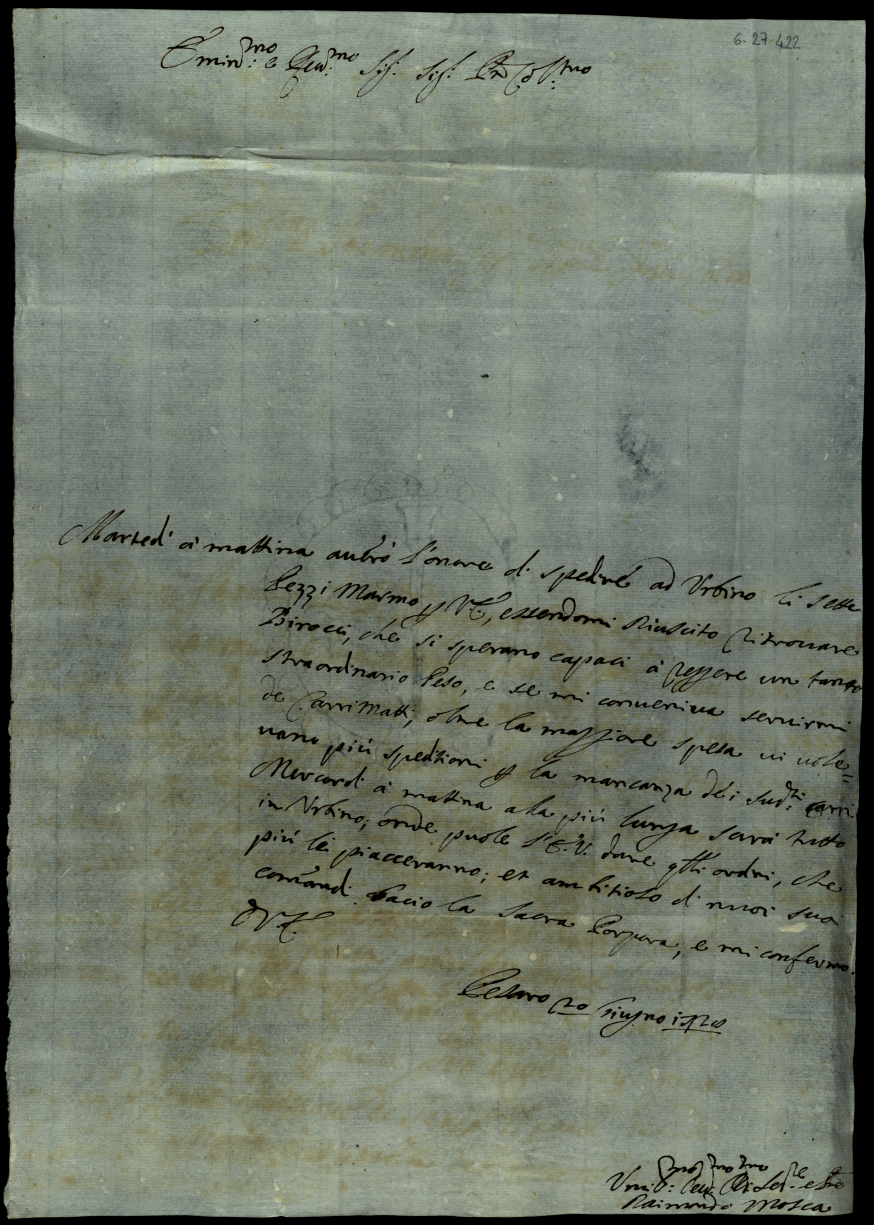 6-27-422
Emin.mo e Rev.mo Sig. Sig. P.rone Col.mo
Martedì a mattina auerò l'onore di spedire ad Urbino li sette
Pezzi Marmo p V.E., essendomi Riuscito Ritrouare
Birocci, che si sperano capaci à reggere un tanto
straordinario Peso, e se mi conueniua seruirmi
de Carri Matti, oltre la maggiore spesa ui uole=
uano più speditioni p la mancanza dei sud.ti carri
Mercordì à mattina a la più lunga sarà tutto
in Urbino; onde puole l'E.V. dare q.lli ordini, che
più le piacceranno; et ambitioso di nuoi suoi
comandi bacio la Sacra Porpora, e mi confermo.
D V.E.
Pesaro 20 Giugno 1728
Um.mo Deu.mo Ser.re
Raimondo Mosca